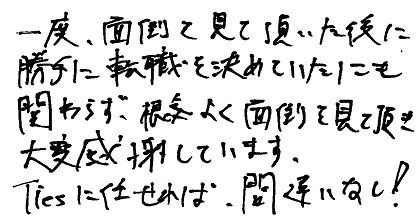 一度、面倒を見て頂いた後に
勝手に転職を決めていたにも
関わらず、根気よく面倒を見て頂き
大変感謝しています。
Tiesに任せれば、間違いなし!